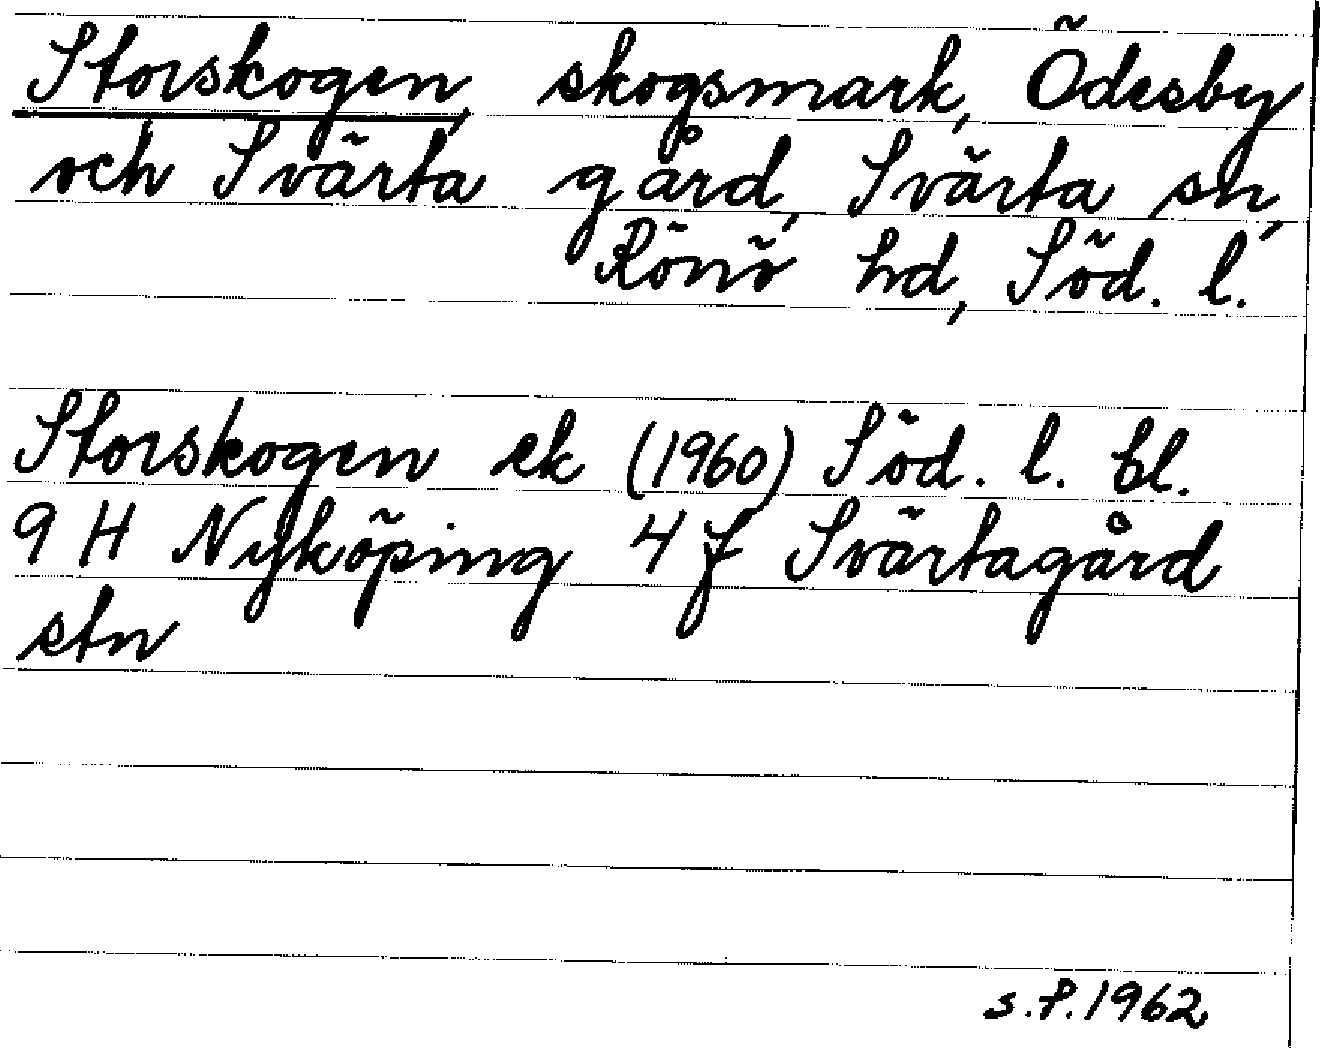 Storskogen, skogsmark, Ödesby
och Svärta gård, Svärta sn,
Rönö hd, Söd. l.
Storskogen ek (1960) Söd. l. bl.
9 H Nyköping 4 f Svärtagård
stn
s.P.1962